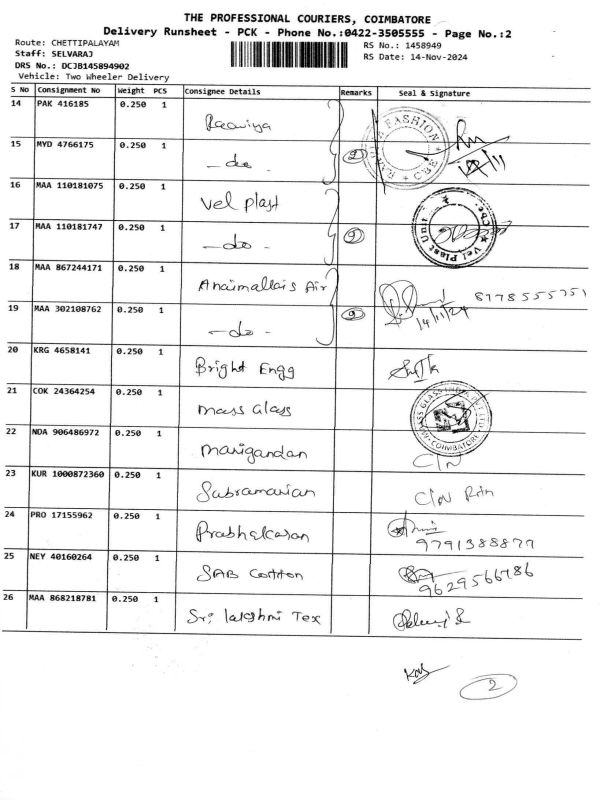 THE PROFESSIONAL COURIERS, COIMBATORE
Delivery Runsheet - PCK - Phone No.:0422-3505555 - Page No.:2
Route: CHETTIPALAYAM
RS No.: 1458949
Staff: SELVARAJ
RS Date: 14-Nov-2024
DRS No.: DCJB145894902
Vehicle: Two Wheeler Delivery
S No Consignment No Weight PCS Consignee Details Remarks Seal & Signature
14 PAK 416185 0.250 1
15 MYD 4766175 0.250 1 - do - 2
FASHION CBE
16 MAA 110181075 0.250 1 Vel plast
17 MAA 110181747 0.250 1 - do - 2
Vel Plast Unit Cbe
18 MAA 867244171 0.250 1 Anaimallais Air 8778555751
14/11/24
19 MAA 302108762 0.250 1 - do - 2
20 KRG 4658141 0.250 1 Bright Engg
21 COK 24364254 0.250 1 Mass Glass
COIMBATORE
22 NDA 906486972 0.250 1 Manigandan
23 KUR 1000872360 0.250 1 Subramanian
24 PRO 17155962 0.250 1 Prabhakaran
9791388877
25 NEY 40160264 0.250 1 SAB Cotton
9629566786
26 MAA 868218781 0.250 1 Sri lakshmi Tex
2